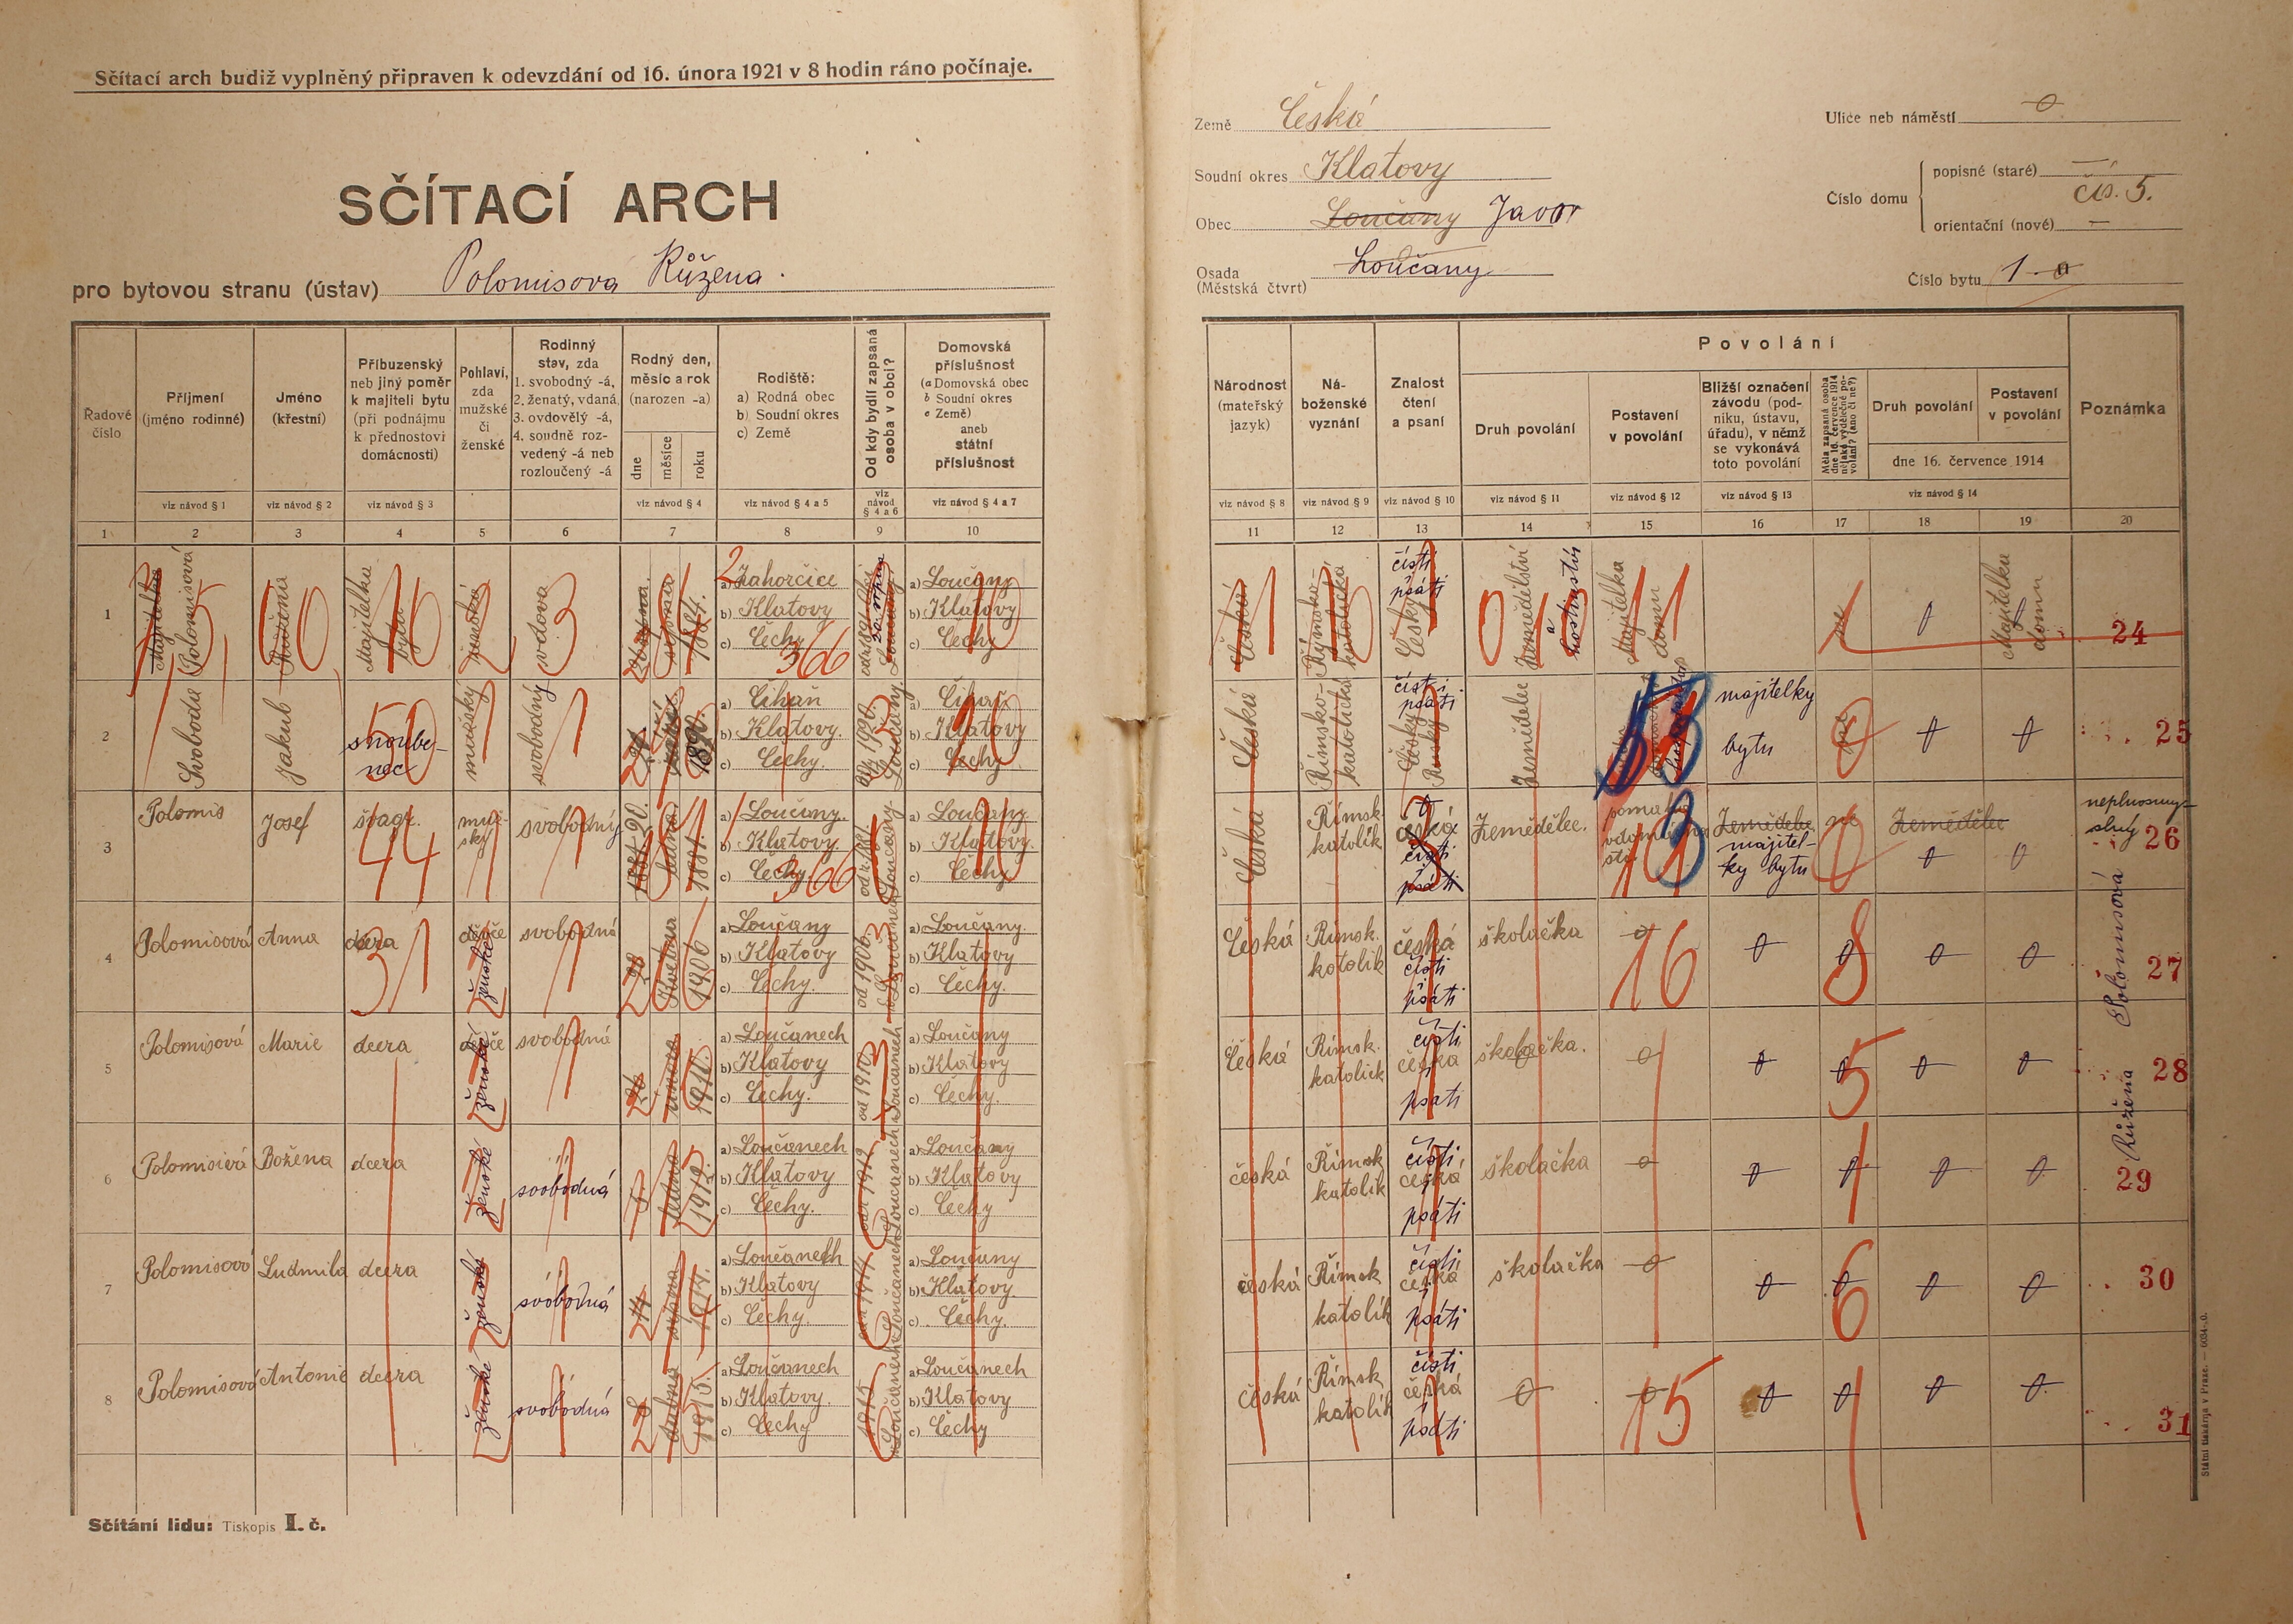 Sčítací arch budiž vyplněný připraven k odevzdání od 16. února 1921 v 8 hodin ráno počínaje.
SČÍTACÍ ARCH
pro bytovou stranu (ústav) Polomisova Růžena.
Země Česká
Soudní okres Klatovy
Obec Loučany Javor
Osada Loučany
(Městská čtvrt)
Ulice neb náměstí
Číslo domu
popisné (staré)
čís. 5.
orientační (nové)
Číslo bytu 1
Řadové číslo
Příjmení (jméno rodinné)
Jméno (křestní)
Příbuzenský neb jiný poměr k majiteli bytu (při podnájmu k přednostovi domácnosti)
Pohlaví, zda mužské či ženské
Rodinný stav, zda 1. svobodný -á, 2. ženatý, vdaná, 3. ovdovělý -á, 4. soudně rozvedený -á neb rozloučený -á
Rodný den, měsíc a rok (narozen -a)
dne měsíce roku
Rodiště: a) Rodná obec b) Soudní okres c) Země
Od kdy bydlí zapsaná osoba v obci?
Domovská příslušnost (a Domovská obec b Soudní okres c Země) aneb státní příslušnost
viz návod § 1 viz návod § 2 viz návod § 3 viz návod § 4 viz návod § 4 a 5 viz návod § 4 a 6 viz návod § 4 a 7
1 2 3 4 5 6 7 8 9 10
Národnost (mateřský jazyk)
Náboženské vyznání
Znalost čtení a psaní
Povolání
Druh povolání
Postavení v povolání
Bližší označení závodu (podniku, ústavu, úřadu), v němž se vykonává toto povolání
Měla zapsaná osoba dne 16. července 1914 nějaké výdělečné povolání? (ano či ne?)
Druh povolání
Postavení v povolání
dne 16. července 1914
Poznámka
viz návod § 8 viz návod § 9 viz návod § 10 viz návod § 11 viz návod § 12 viz návod § 13 viz návod § 14
11 12 13 14 15 16 17 18 19 20
1 Majitelka Polomisová Růžena Majitelka bytu ženská vdova srpna 1884.
a) Zahorčice b) Klatovy c) Čechy 366
a) Loučany b) Klatovy c) Čechy
Česká Římsko-katolická čísti psáti Česky Zemědělství a hostinství Majitelka domu ne Majitelka domu 24
2 Svoboda Jakub snoubenec mužský svobodný 1890.
a) Čihaň b) Klatovy. c) Čechy.
od 1920. Loučany.
a) Čihaň b) Klatovy c) Čechy
Česká Římsko-katolická čísti psáti Česky Zemědělec majitelky bytu 25
3 Polomis Josef švagr. mužský svobodný 20. ledna 1881.
a) Loučany. b) Klatovy. c) Čechy 366
od r. 1881 Loučany
a) Loučany b) Klatovy. c) Čechy
Česká Římsk. katolík česká čísti psáti Zemědělec. Zemědělec majitelky bytu ne Zemědělec 26
4 Polomisová Anna dcera děvče ženské svobodná 28 Května 1906
a) Loučany b) Klatovy c) Čechy.
od 1906
a) Loučany. b) Klatovy c) Čechy.
Česká Římsk. katolík česká čísti psáti školačka 16 8 27
5 Polomisová Marie dcera děvče ženské svobodná února 1910.
a) Loučanech b) Klatovy c) Čechy.
od 1910 Loučanech
a) Loučany b) Klatovy c) Čechy.
Česká Římsk. katolick čísti česká psati školačka. 5 28
6 Polomisová Božena dcera ženské svobodná ledna 1912.
a) Loučanech b) Klatovy c) Čechy.
1912 Loučanech
a) Loučany b) Klatovy c) Čechy
česká Římsk katolík čísti česká psáti školačka 29
7 Polomisová Ludmila dcera ženské svobodná srpna 1914.
a) Loučanech b) Klatovy c) Čechy.
1914 Loučanech
a) Loučany b) Klatovy c) Čechy.
česká Římsk katolík čísti česká psáti školačka 6 30
8 Polomisová Antonie dcera ženské svobodná dubna 1915.
a) Loučanech b) Klatovy. c) Čechy
1915 Loučanech
a) Loučanech b) Klatovy c) Čechy
česká Římsk katolík čísti česká psáti 15 31
Polomisová Růžena
Sčítání lidu: Tiskopis I. č.
Státní tiskárna v Praze.